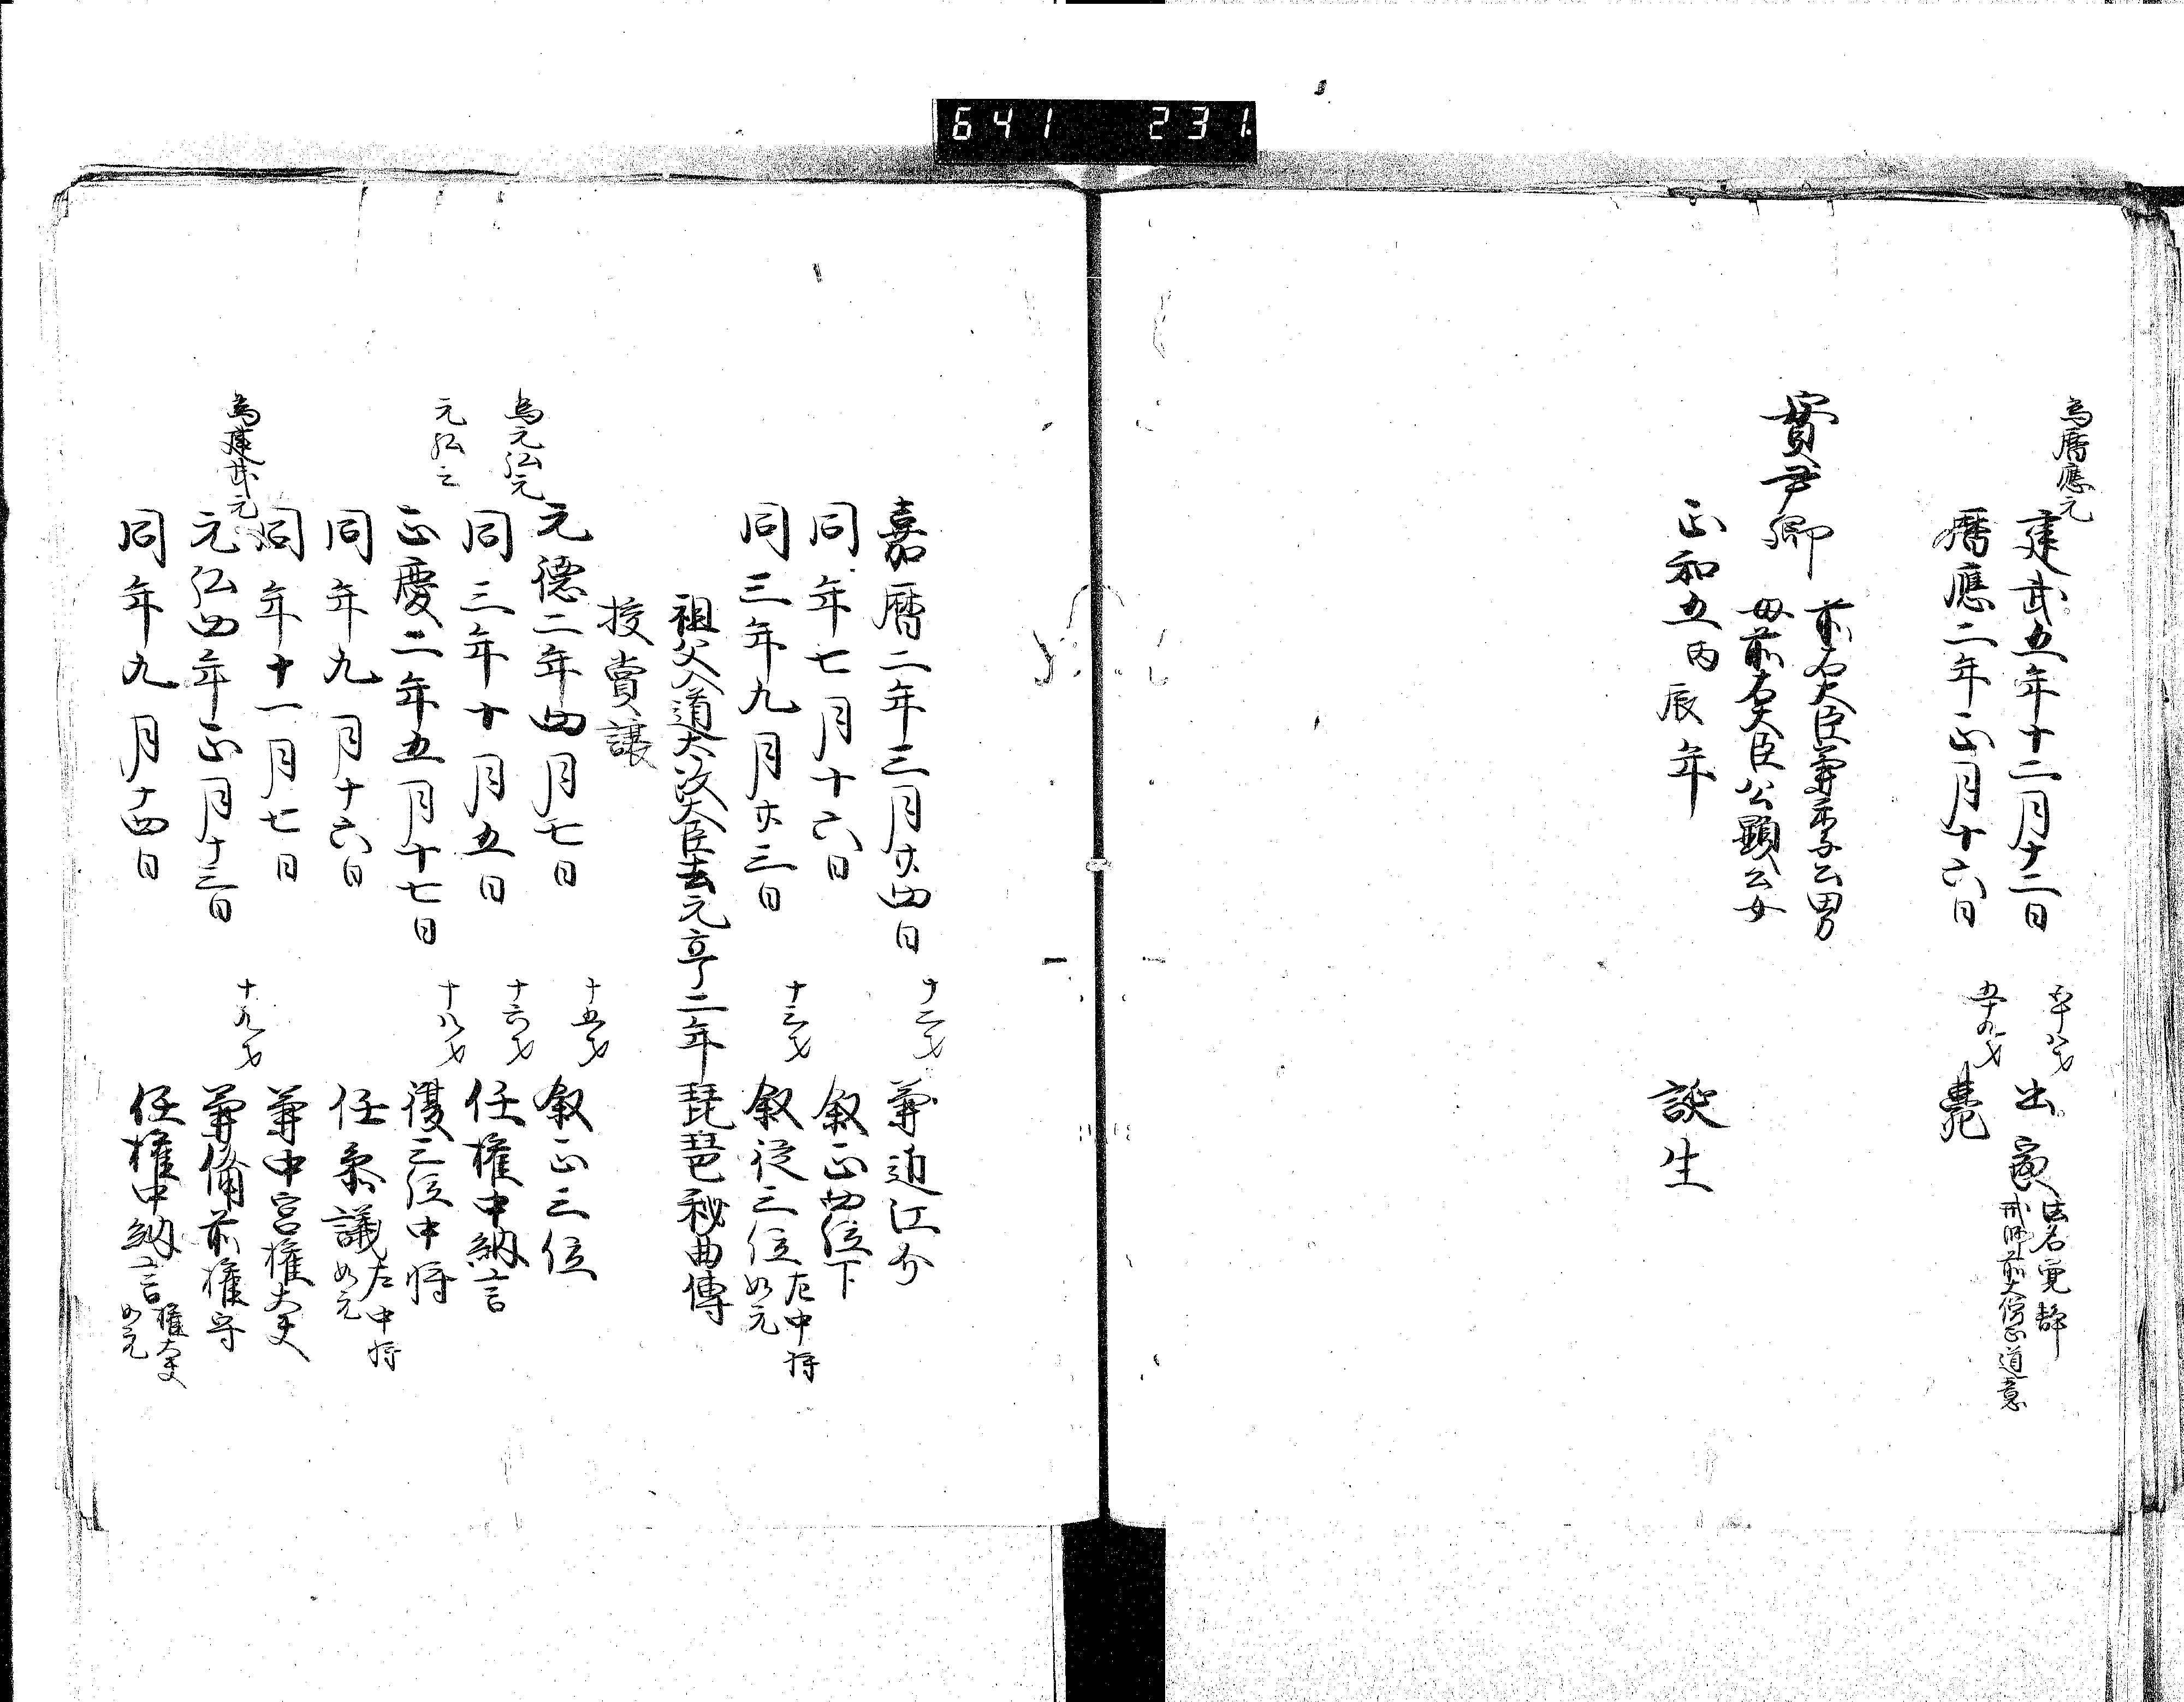 641 231.
為暦應元
建武五年十二月十二日 五十八才 出家 法名覚静
戒師前大僧正道意
暦應二年正月十六日 五十九才 薨
實尹卿 前右大臣兼季公男
母前右大臣公顕公女
正和五丙辰年 誕生
嘉暦二年三月廿四日 十二才 兼近江介
同年七月十六日 叙正四位下
同三年九月廿三日 十三才 叙従三位 左中将
如元
祖父入道太政大臣去元亨二年琵琶秘曲傳
授賞譲
元徳二年四月七日 十五才 叙正三位
為元弘元
同三年十月五日 十六才 任権中納言
元弘三
正慶二年五月十七日 十八才 復三位中将
同年九月十六日 任参議 左中将
如元
同年十一月七日 兼中宮権大夫
為建武元
元弘四年正月十三日 十九才 兼備前権守
同年九月十四日 任権中納言 権大夫
如元